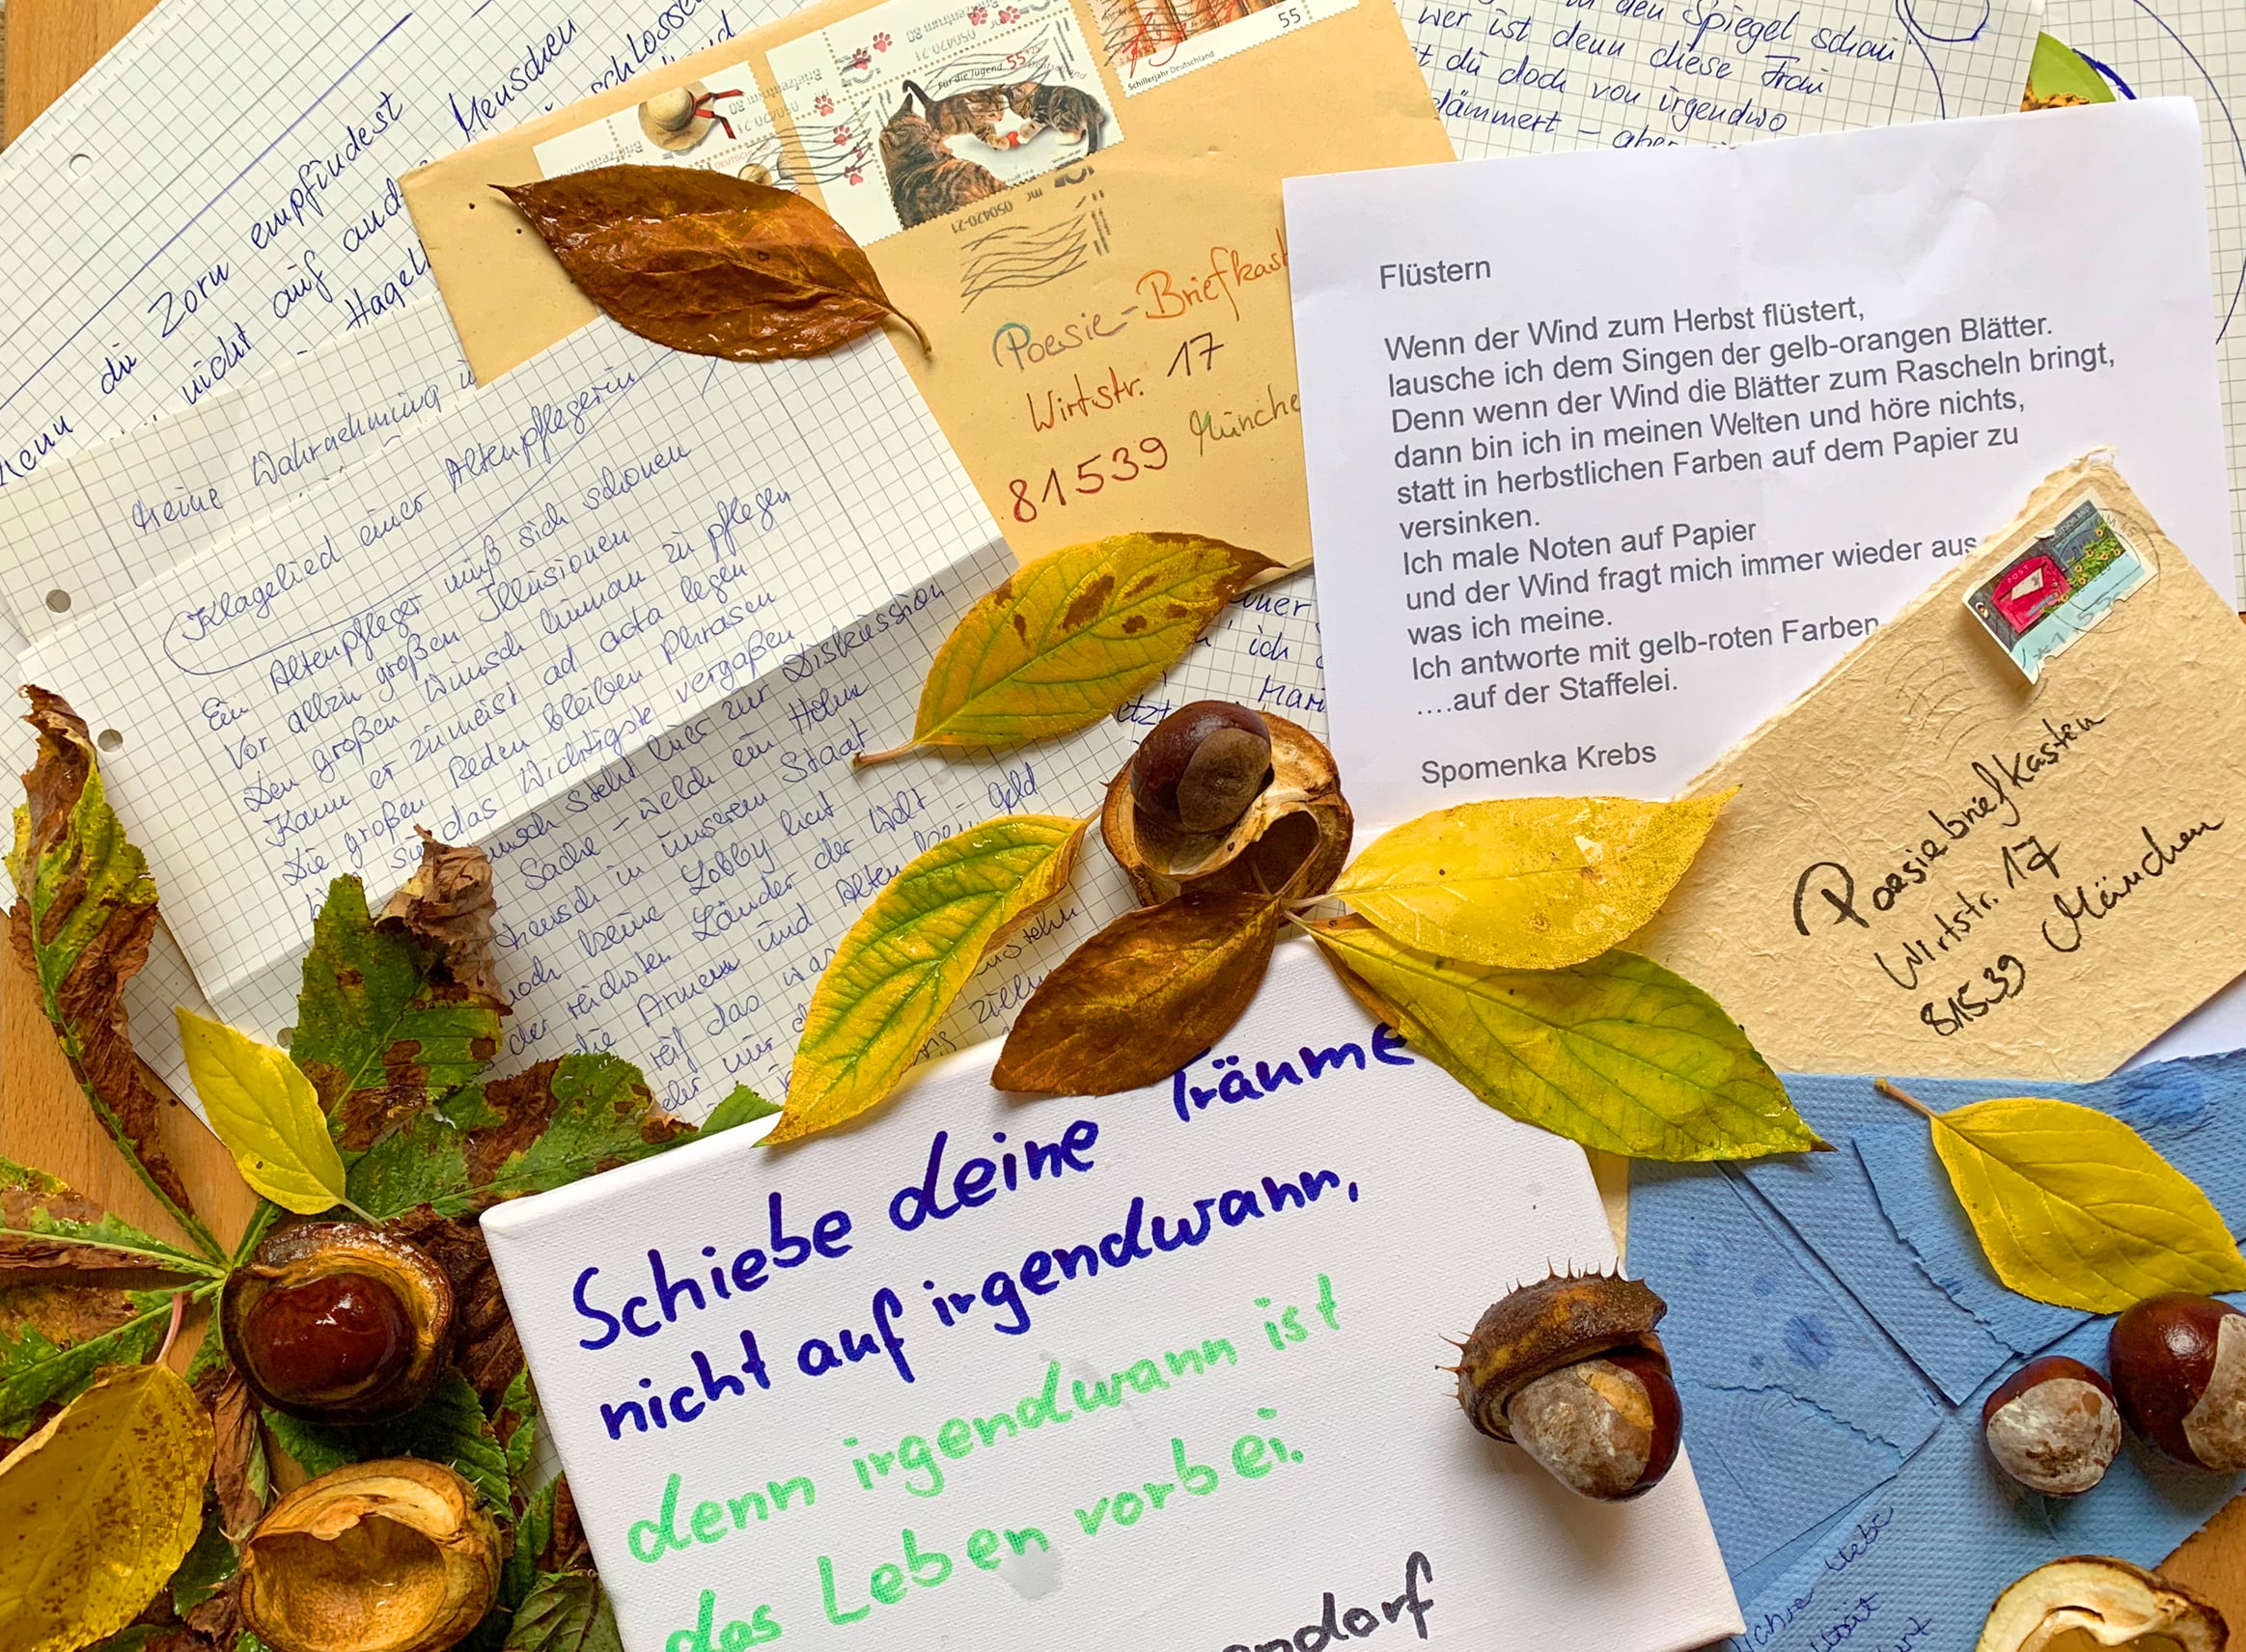 wenn du Zorn empfindest
nicht auf
Menschen
Hagel
Keine Wahrnehmung
Klagelied einer Altenpflegerin
Ein Altenpfleger muß sich schonen
Vor allzu großen Illusionen
Den großen Wunsch human zu pflegen
Kann er zumeist ad acta legen
Die großen Reden bleiben Phrasen
das Wichtigste vergaßen
steht hier zur Diskussion
Sache – welch ein Hohn
Mensch in unserem Staat
noch keine Lobby hat
der reichsten Länder der Welt
die Armen und Alten Geld
auf das was
der nur
DEUTSCHLAND
Für die Jugend 55
Deutschland
Briefzentrum 80
050420-21
55
Schillerjahr Deutschland
Poesie-Briefkast
Wirtstr. 17
81539 Münche
in den Spiegel schau
wer ist denn diese Frau
du doch von irgendwo
dämmert – aber
Flüstern
Wenn der Wind zum Herbst flüstert,
lausche ich dem Singen der gelb-orangen Blätter.
Denn wenn der Wind die Blätter zum Rascheln bringt,
dann bin ich in meinen Welten und höre nichts,
statt in herbstlichen Farben auf dem Papier zu
versinken.
Ich male Noten auf Papier
und der Wind fragt mich immer wieder aus
was ich meine.
Ich antworte mit gelb-roten Farben
....auf der Staffelei.
Spomenka Krebs
POST
Poesiebriefkasten
Wirtstr. 17
81539 München
ich
Schiebe deine Träume
nicht auf irgendwann,
denn irgendwann ist
das Leben vorbei.
endorf